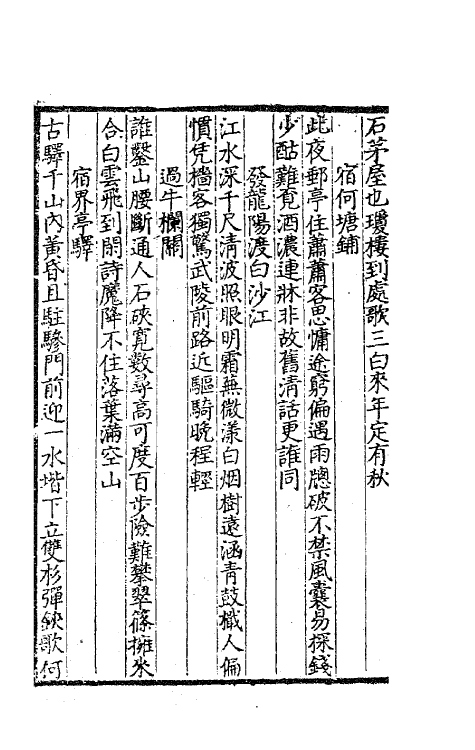 石茅屋也瓊樓到處歌三白來年定有秋
宿何塘鋪
此夜郵亭住蕭蕭客思慵途窮偏遇雨牕破不禁風囊易探錢
少酤難覓酒濃連牀非故舊清話更誰同
發龍陽渡白沙江
江水深千尺清波照眼明霜蕪微漾白烟樹遠涵青鼓檝人偏
慣凭檣客獨驚武陵前路近驅騎晚程輕
過牛欄關
誰鑿山腰斷通人石硤寬數尋高可度百步險難攀翠篠擁來
合白雲飛到閑詩魔降不住落葉滿空山
宿界亭驛
古驛千山內黃昏且駐驂門前迎一水堦下立雙杉彈鋏歌何